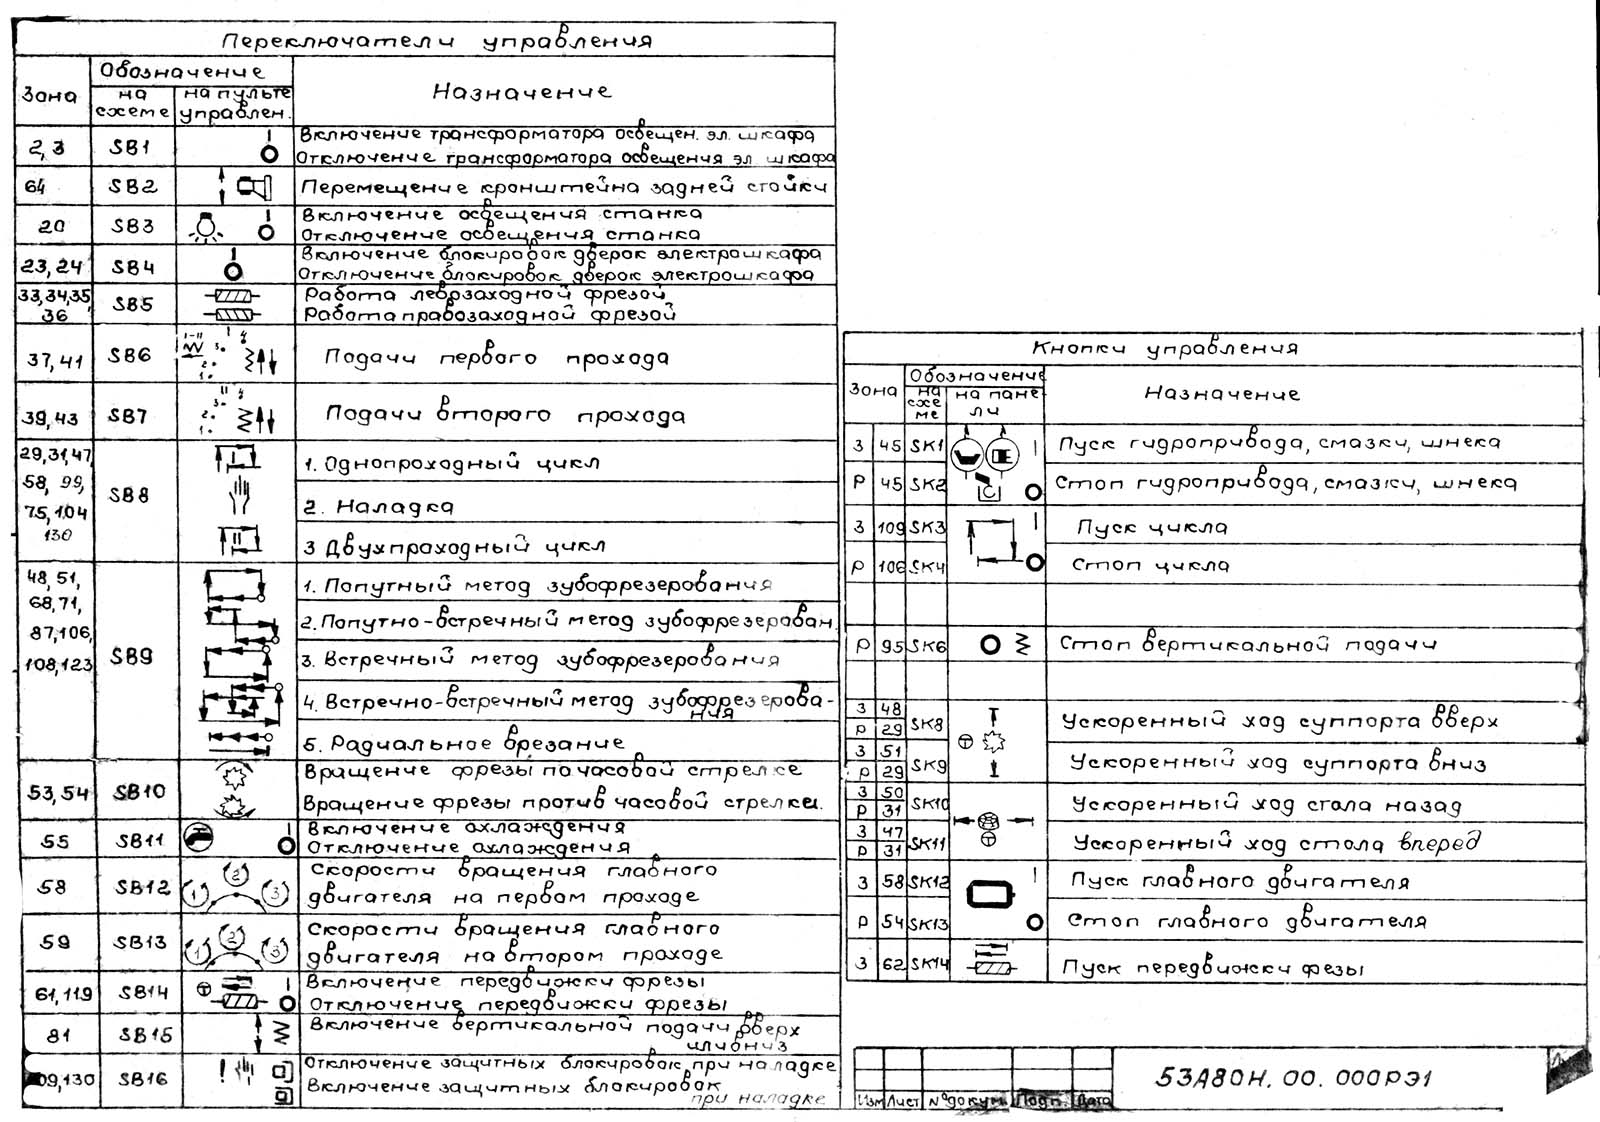 Переключатели управления
Зона
Обозначение
на схеме
на пульте управлен.
Назначение
2,3 SB1 Включение трансформатора освещен. эл. шкафа
Отключение трансформатора освещения эл. шкафа
64 SB2 Перемещение кронштейна задней стойки
20 SB3 Включение освещения станка
Отключение освещения станка
23,24 SB4 Включение блокировок дверок электрошкафа
Отключение блокировок дверок электрошкафа
33,34,35, SB5 Работа левозаходной фрезой
36 Работа правозаходной фрезой
37,41 SB6 Подачи первого прохода
39,43 SB7 Подачи второго прохода
29,31,47, 1. Однопроходный цикл
58, 99, SB8 2. Наладка
75,104
130 3 Двухпроходный цикл
48,51, 1. Попутный метод зубофрезерования
68,71, 2. Попутно-встречный метод зубофрезерован.
87,106,
108,123 SB9 3. Встречный метод зубофрезерования
4. Встречно-встречный метод зубофрезерова-
ния
5. Радиальное врезание
53,54 SB10 Вращение фрезы по часовой стрелке
Вращение фрезы против часовой стрелки.
55 SB11 Включение охлаждения
Отключение охлаждения
58 SB12 1 2 3 Скорости вращения главного
двигателя на первом проходе
59 SB13 1 2 3 Скорости вращения главного
двигателя на втором проходе
61,119 SB14 Включение передвижки фрезы
Отключение передвижки фрезы
81 SB15 Включение вертикальной подачи вверх
или вниз
09,130 SB16 ! Отключение защитных блокировок при наладке
Включение защитных блокировок
при наладке
Кнопки управления
Зона
Обозначение
на схе ме
на пане ли
Назначение
З 45 SK1 Пуск гидропривода, смазки, шнека
Р 45 SK2 Стоп гидропривода, смазки, шнека
З 109 SK3 Пуск цикла
Р 106 SK4 Стоп цикла
Р 95 SK6 Стоп вертикальной подачи
З 48 SK8 Ускоренный ход суппорта вверх
Р 29
З 51 SK9 Ускоренный ход суппорта вниз
Р 29
З 50 SK10 Ускоренный ход стола назад
Р 31
З 47 SK11 Ускоренный ход стола вперед
Р 31
З 58 SK12 Пуск главного двигателя
Р 54 SK13 Стоп главного двигателя
З 62 SK14 Пуск передвижки фезы
53А80Н. 00. 000РЭ1
Изм Лист №докум. Подп. Дата